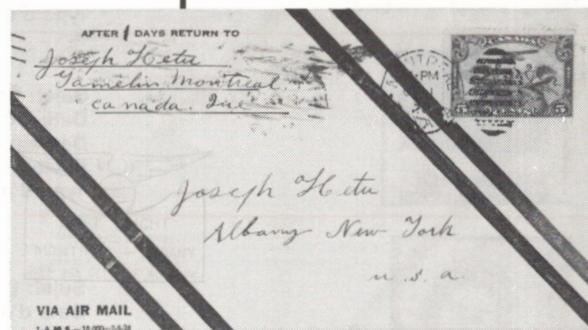 AFTER 1 DAYS RETURN TO
Joseph Hetu
Gamelin Montreal
Canada. Que
PM
5 5
Joseph Hetu
Albany New York
U. S. A.
VIA AIR MAIL